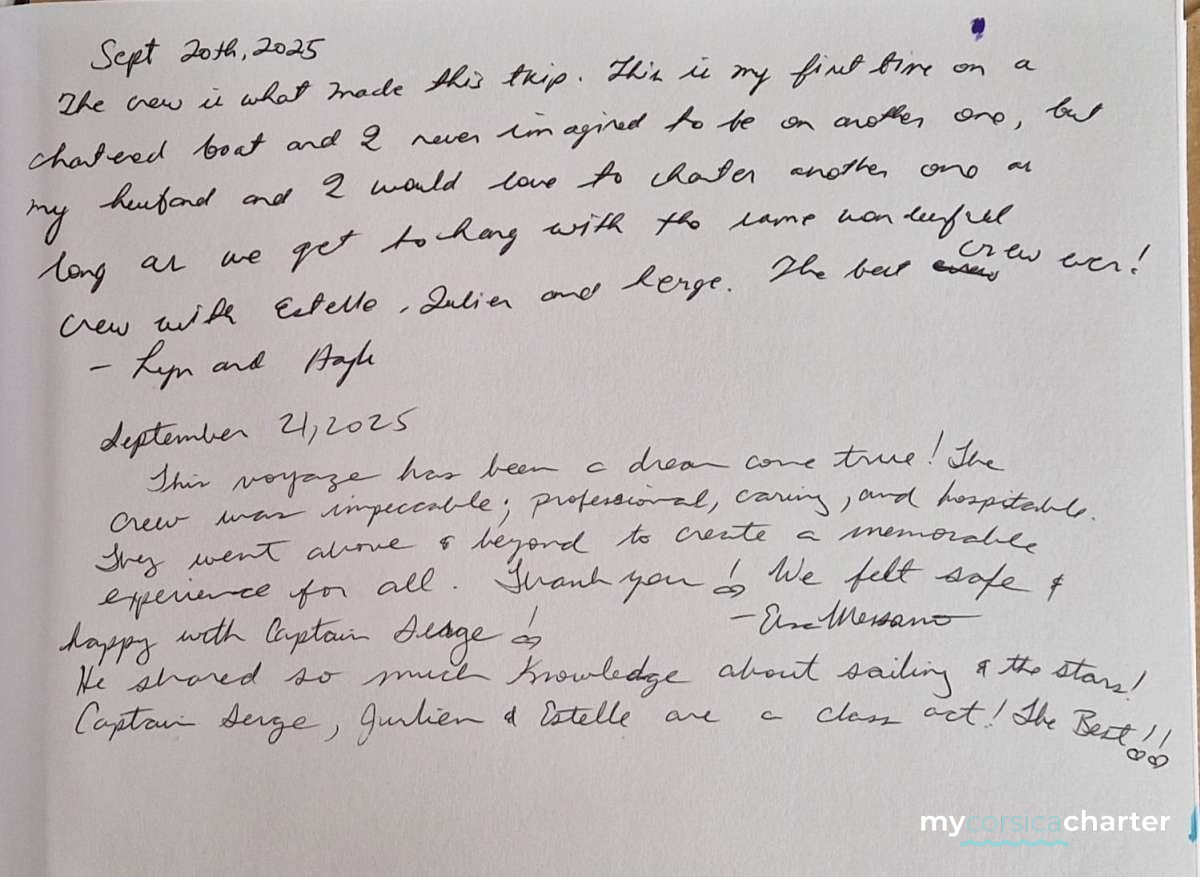 Sept 20th, 2025
The crew is what made this trip. This is my first time on a
chartered boat and I never imagined to be on another one, but
my husband and I would love to charter another one as
long as we get to hang with the same wonderful
crew with Estelle, Julien and Serge. The best crew ever!
- Lyn and
September 21, 2025
This voyage has been a dream come true! The
crew was impeccable; professional, caring, and hospitable.
They went above & beyond to create a memorable
experience for all. Thank you! We felt safe &
happy with Captain Serge!
He shared so much knowledge about sailing & the stars!
Captain Serge, Jurlien & Estelle are a class act! The Best!!
mycorsicacharter